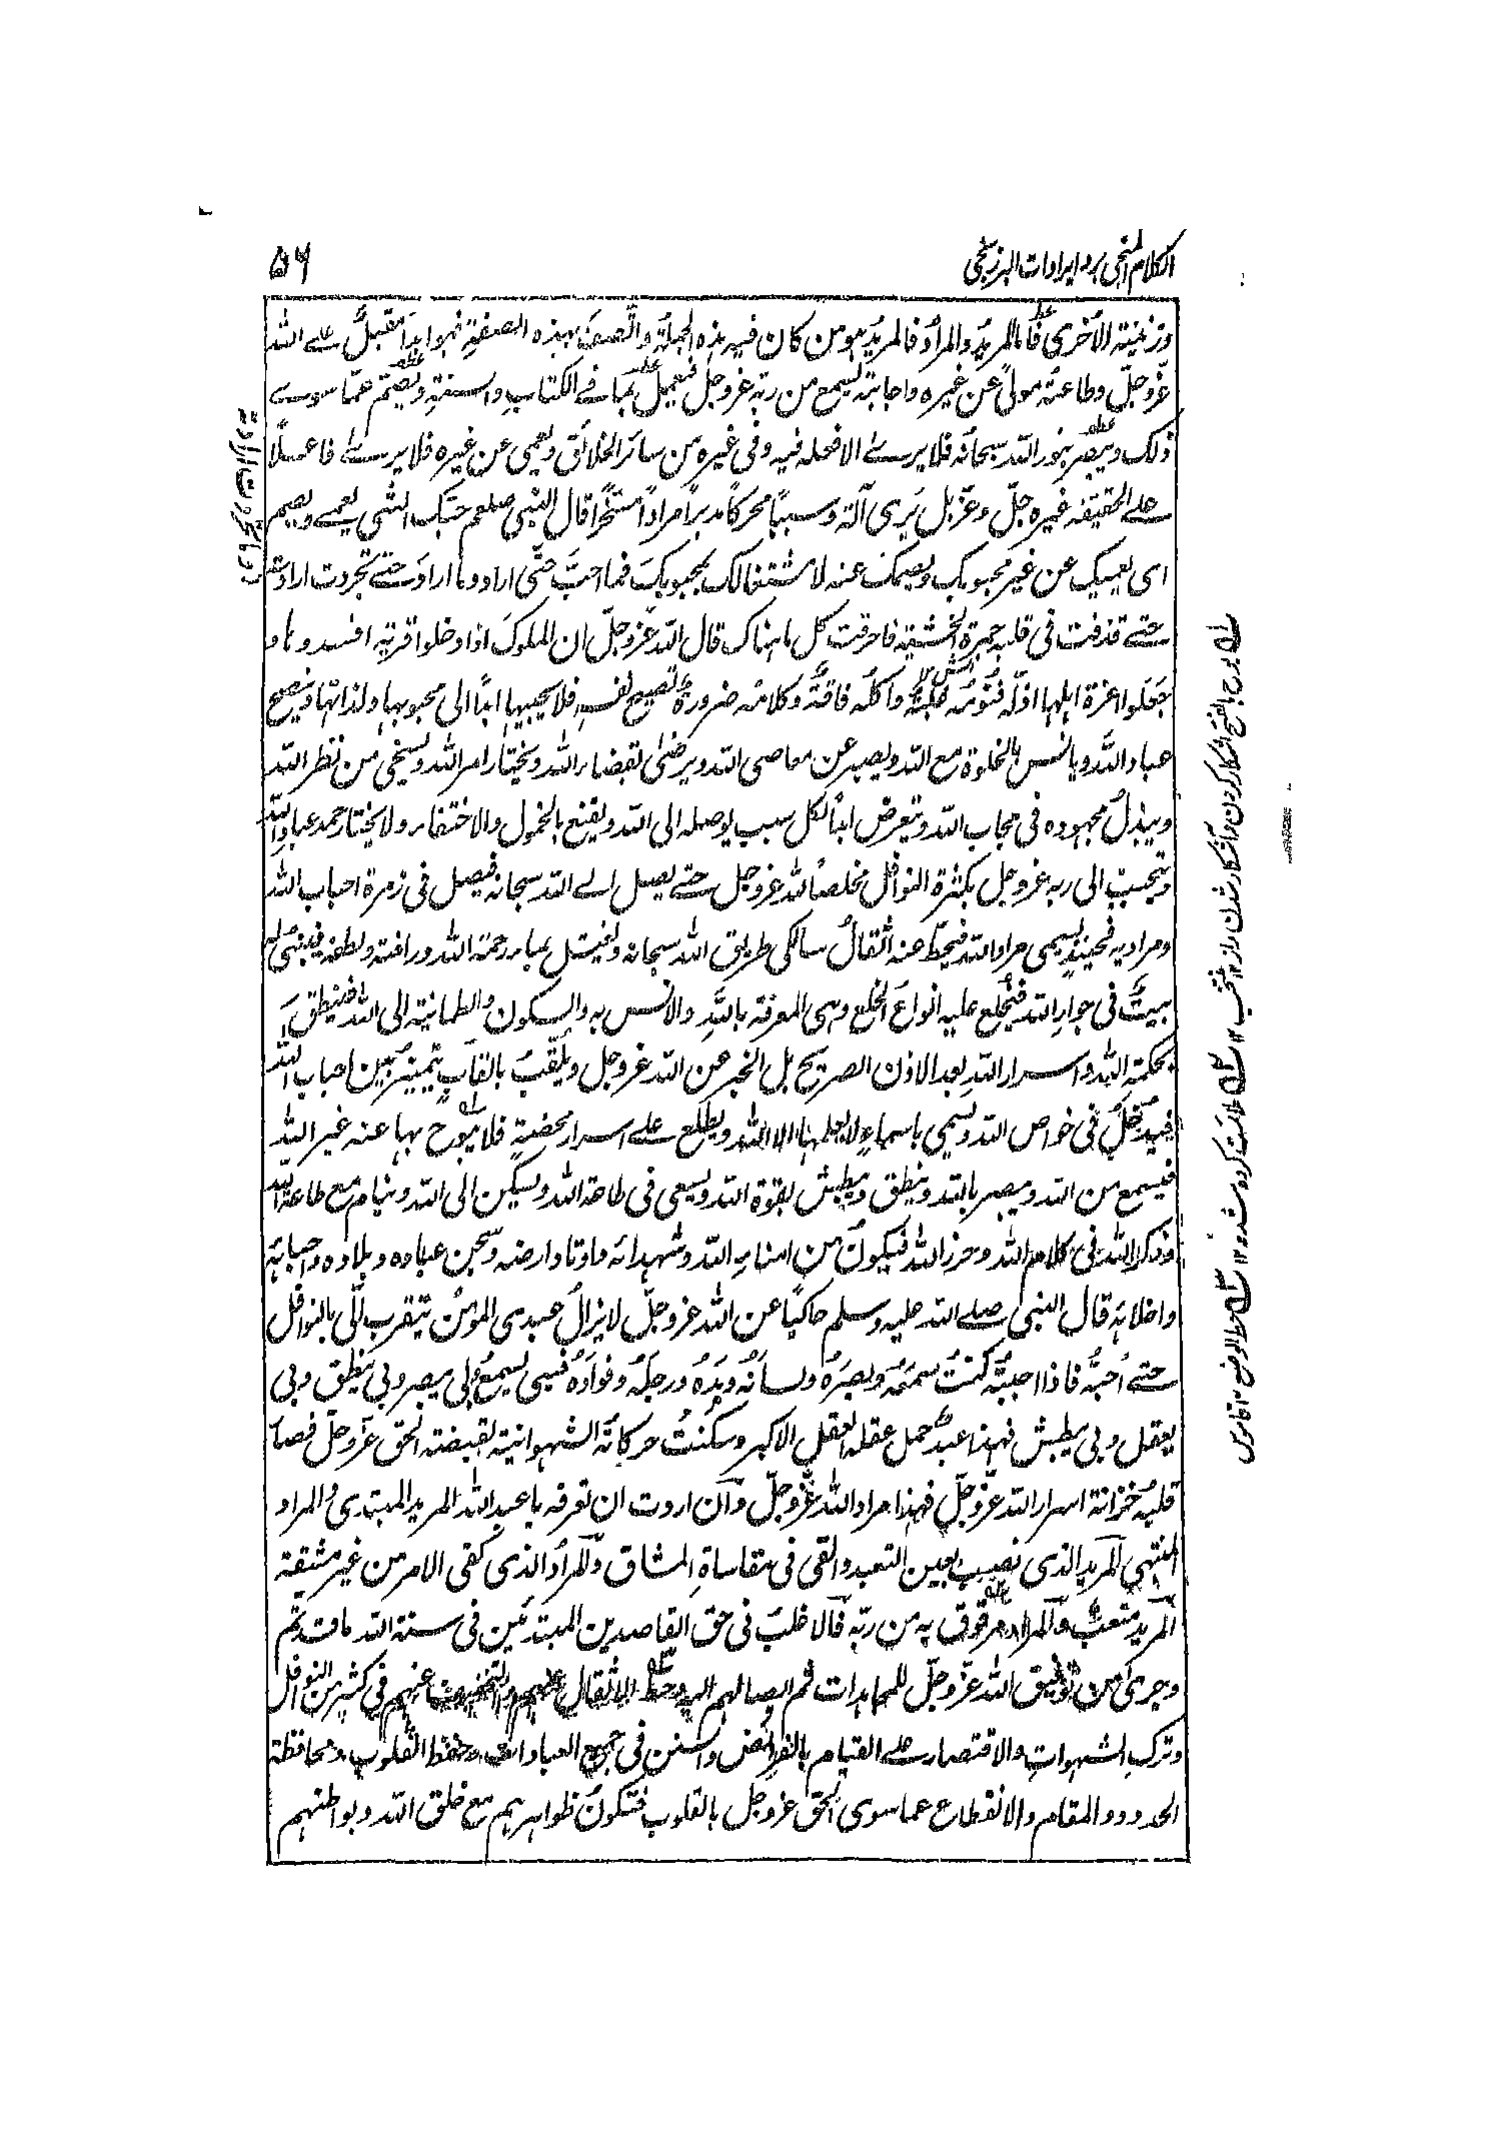 الكلام المنجى برد ايرادات البرزنجى
٥٦
وزينية الاخرى فاما المريد والمراد فالمريد هو من كان فيه هذه الجملة واتصف بهذه الصفة فهو ابدا مقبل على الله
عز وجل وطاعته مولى عن غيره واجابته يسمع من ربه عز وجل فيعمل بما فى الكتاب والسنة ويصم عما سوى
ذلك ويبصر بنور الله سبحانه فلا يرى الا فعله فيه وفى غيره من سائر الخلائق ويعمى عن غيره فلا يرى فاعلا
على الحقيقة غيره جل وعز بل يرى آلة وسببا محركا مدبرا مرادا مسخرا قال النبى صلعم حبك الشى يعمى ويصم
اى يعميك عن غير محبوبك ويصمك عنه لاشتغالك بمحبوبك فما احب حتى اراد وما اراد حتى تجردت ارادته
حتى قذفت فى قلبه جمرة الخشية فاحرقت كل ما هناك قال الله عز وجل ان الملوك اذا دخلوا قرية افسدوها و
جعلوا اعزة اهلها اذلة فنومه غلبة واكله فاقة وكلامه ضرورة تصيح نفسه فلا يجيبها ابدا الى محبوبها ولذاتها وينصح
عباد الله ويانس بالخلوة مع الله ويصبر عن معاصى الله ويرضى بقضاء الله ويختار امر الله ويستحى من نظر الله
ويبذل مجهوده فى محاب الله ويتعرض ابدا لكل سبب يوصله الى الله ويقنع بالخمول والاختفاء ولا يختار حمد عباد الله
ويتحبب الى ربه عز وجل بكثرة النوافل مخلصا لله عز وجل حتى يصل الى الله سبحانه فيصل فى زمرة احباب الله
ومراديه فحينئذ يسمى مراد الله فيحط عنه اثقال سالكى طريق الله سبحانه ويغتسل بماء رحمة الله ورافته ولطفه فيبنى له
بيت فى جوار الله فيخلع عليه انواع الخلع وهى المعرفة بالله والانس به والسكون والطمانية الى الله فينطق
بحكمة الله واسرار الله بعد الاذن الصريح بل الخبر عن الله عز وجل ويلقب بالقاب يتميز بين احباب الله
فيدخل فى خواص الله ويسمى باسماء لا يعلمها الا الله ويطلع على اسرار تخصه فلا يبوح بها عنه غير الله
فيسمع من الله ويبصر بالله وينطق ويبطش بقوة الله ويسعى فى طاعة الله ويسكن الى الله وينام مع طاعة الله
وذكر الله فى كلام الله وحرز الله فيكون من امناء الله وشهدائه واوتاد ارضه وسجن عباده وبلاده واحبائه
واخلائه قال النبى صلى الله عليه وسلم حاكيا عن الله عز وجل لا يزال عبدى المؤمن يتقرب الى بالنوافل
حتى احبه فاذا احببته كنت سمعه وبصره ولسانه ويده ورجله وفواده فبى يسمع وبى يبصر وبى ينطق وبى
يعقل وبى يبطش فهذا عبد حمل عقله العقل الاكبر وسكنت حركاته الشهوانية لقبضة الحق عز وجل فصار
قلبه خزانة اسرار الله عز وجل فهذا مراد الله عز وجل وان اردت ان تعرفه يا عبد الله المريد المبتدى والمراد
المنتهى المريد الذى نصب بعين التعبد والقى فى مقاساة المشاق والمراد الذى كفى الامر من غير مشقة
المريد متعب والمراد مرفوق به من ربه فالاغلب فى حق القاصدين المبتدئين فى سنة الله ما قد تم
وجرى من توفيق الله عز وجل للمجاهدات ثم ايصالهم اليه وحط الاثقال عنهم والتخفيف عنهم فى كثير من النوافل
وترك الشهوات والاقتصار على القيام بالفرائض والسنن فى جميع العبادات وحفظ القلوب ومحافظة
الحدود والمقام والانقطاع عما سوى الحق عز وجل بالقلوب فتكون ظواهرهم مع خلق الله وبواطنهم